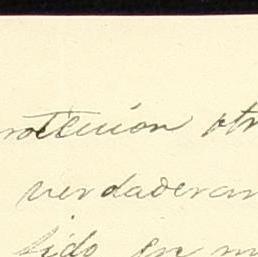 rotección otr
verdaderam
sido en m